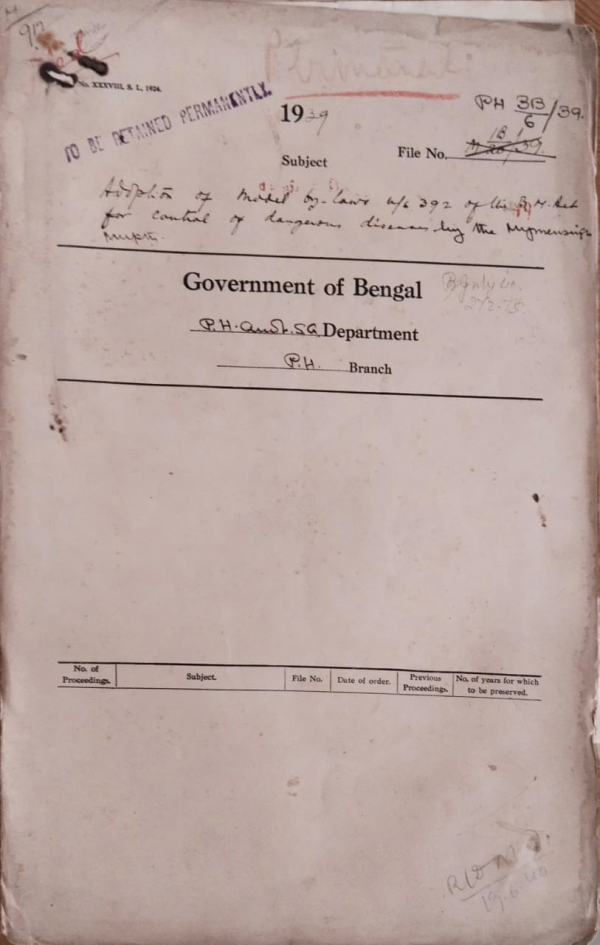 Permanent
No. XXXVIII, S. L., 1924.
TO BE RETAINED PERMANENTLY.
1939
PH 3B/6/39.
Subject
File No.
Adoption of Model by-laws u/s 392 of the B. M. Act
for control of dangerous diseases by the Mymensingh
Government of Bengal
P.H. and L.S.G. Department
P.H. Branch
No. of Proceedings.
Subject.
File No.
Date of order.
Previous Proceedings.
No. of years for which to be preserved.
19.6.40